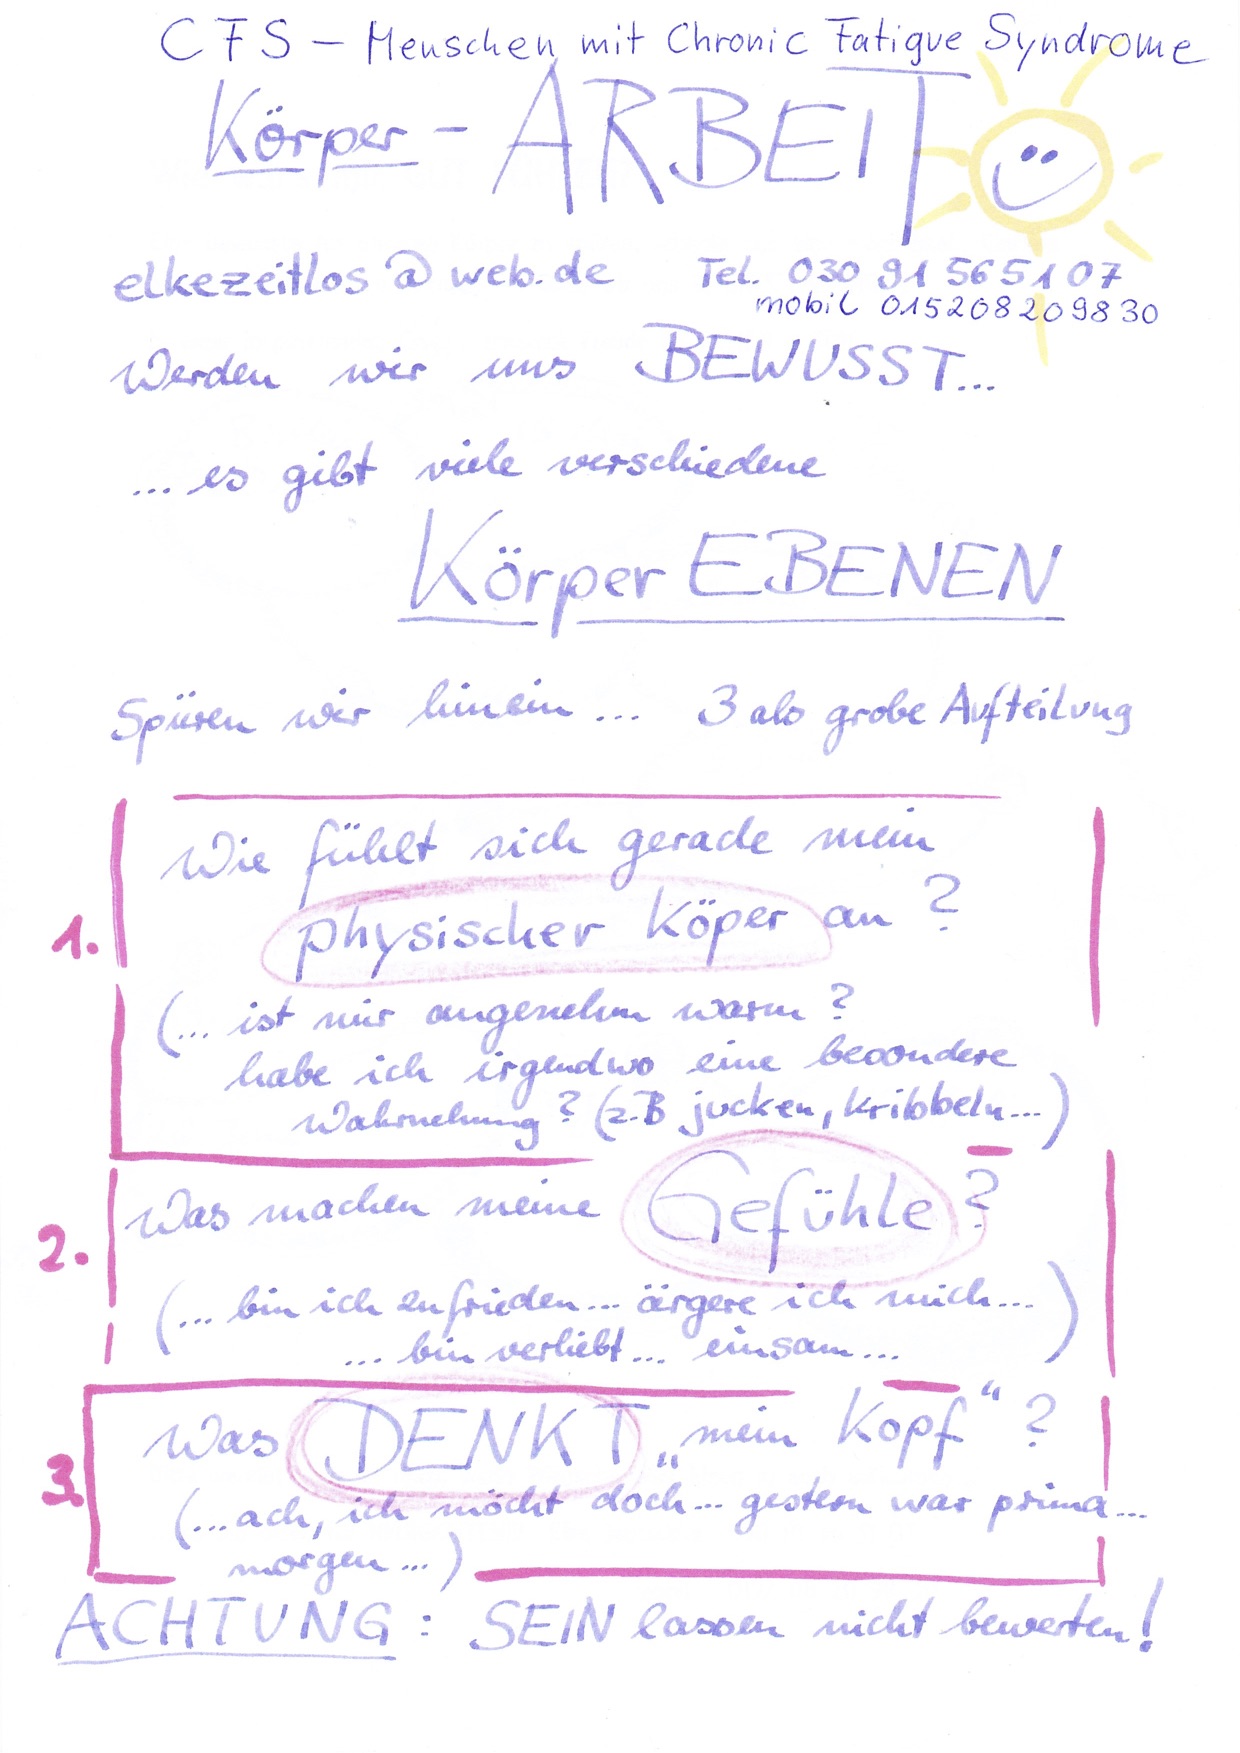 CFS – Menschen mit Chronic Fatigue Syndrome
Körper - ARBEIT
elkezeitlos@web.de Tel. 030 91 565107
mobil 015208209830
Werden wir uns BEWUSST...
... es gibt viele verschiedene
Körper EBENEN
Spüren wir hinein ... 3 als grobe Aufteilung
Wie fühlt sich gerade mein
1. physischer Köper an ?
(... ist mir angenehm warm ?
habe ich irgendwo eine besondere
Wahrnehung ? (z.B jucken, kribbeln...)
Was machen meine Gefühle ?
2.
(... bin ich zufrieden... ärgere ich mich...
... bin verliebt... einsam...)
Was DENKT „mein Kopf“ ?
3. (...ach, ich möcht doch... gestern war prima...
morgen ...)
ACHTUNG : SEIN lassen nicht bewerten!